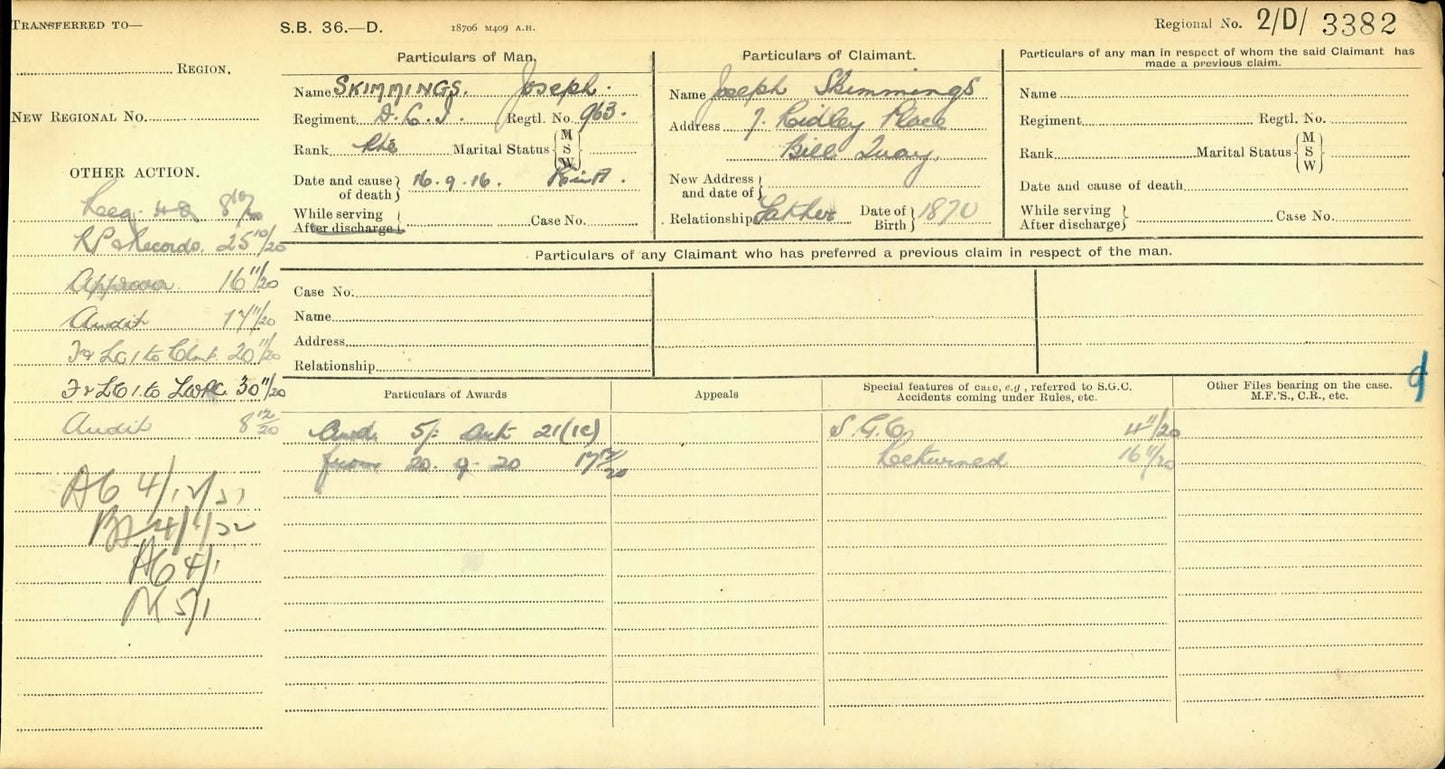 TRANSFERRED TO—
REGION.
NEW REGIONAL No.
OTHER ACTION.
8/10/20
RP & Records. 25/10/20
Approval 16/11/20
Audit 17/11/20
20/11/20
30/11/20
Audit 8/12/20
4/1
5/1
S.B. 36.—D.
18706 M409 A.H.
Regional No. 2/D/ 3382
Particulars of Man.
Name SKIMMINGS. Joseph.
Regiment D.L.I. Regtl. No. 963.
Rank Pte Marital Status { M S W
Date and cause of death } 16.9.16. KinA.
While serving
After discharge } Case No.
Particulars of Claimant.
Name Joseph Skimmings
Address 7. Ridley Place
Bill Quay.
New Address and date of }
Relationship Father Date of Birth } 1870
Particulars of any man in respect of whom the said Claimant has
made a previous claim.
Name
Regiment Regtl. No.
Rank Marital Status { M S W }
Date and cause of death
While serving
After discharge } Case No.
Particulars of any Claimant who has preferred a previous claim in respect of the man.
Case No.
Name
Address
Relationship
Particulars of Awards
Awd. 5/- Art 21(1c)
from 20. 9. 20 17/12/20
Appeals
Special features of case, e.g, referred to S.G.C.
Accidents coming under Rules, etc.
S.G.O 4/11/20
Returned 16/11/20
Other Files bearing on the case.
M.F.'S., C.R., etc.